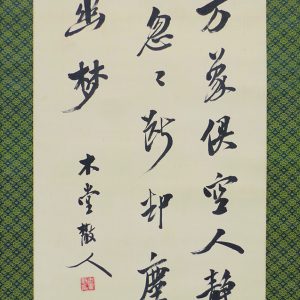 万象俱空人静
忽々断却塵
幽梦
木堂散人